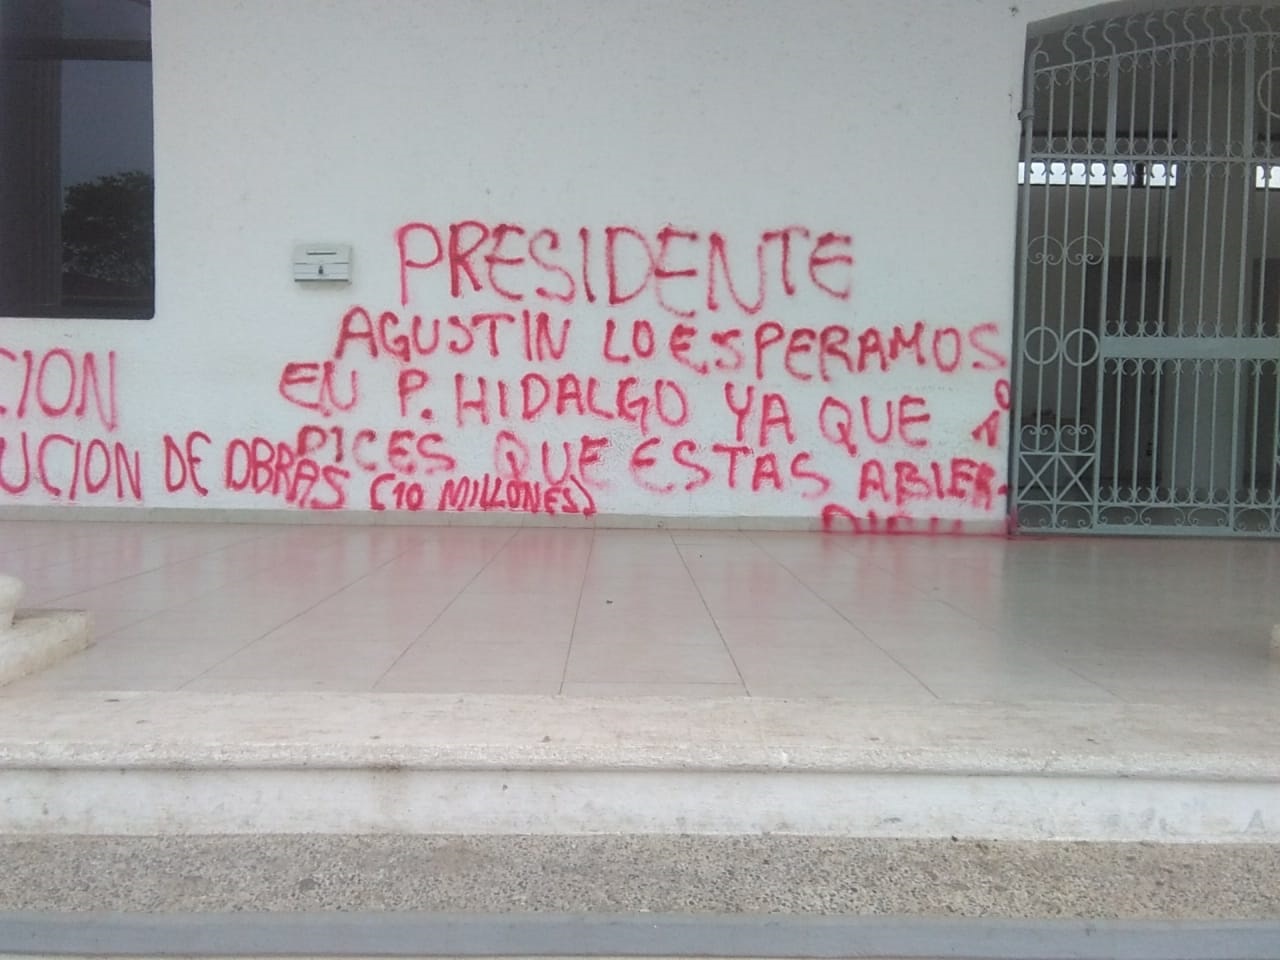 PRESIDENTE
AGUSTIN LO ESPERAMOS
EN P. HIDALGO YA QUE
DICES QUE ESTAS ABIER-
CION
UCION DE OBRAS (10 MILLONES)